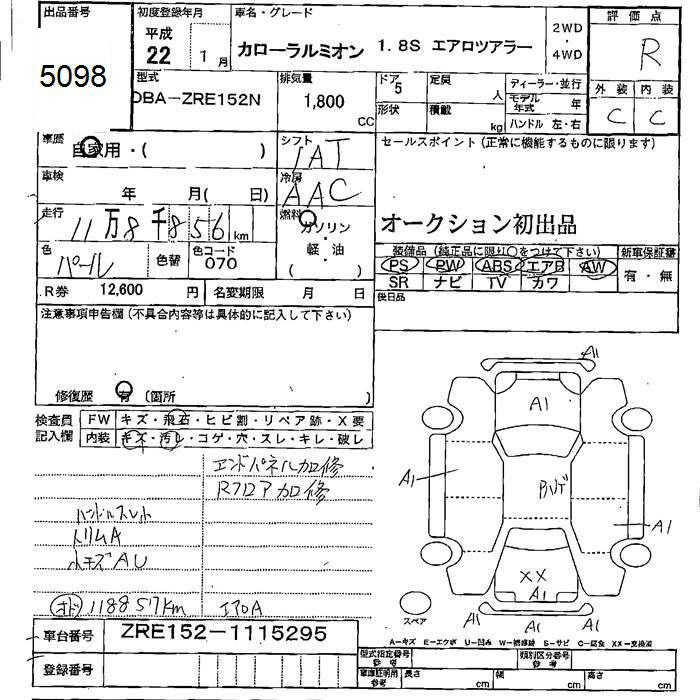 出品番号
5098
初度登録年月
平成
22 1月
車名・グレード
カローラルミオン 1.8S エアロツアラー
2WD
・
4WD
評価点
R
外装 内装
C C
型式
DBA-ZRE152N
排気量
1,800
CC
ドア
5
定員
人
形状
積載
kg
ディーラー・並行
モデル年式 年
ハンドル 左・右
車歴
自家用・( )
シフト
IAT
車検
年 月( 日)
冷房
AAC
走行
11万8千856km
燃料
ガソリン
・
軽・油
( )
色
パール
色替
色コード
070
R券 12,600 円
名変期限 月 日
セールスポイント(正常に機能するものに限ります)
オークション初出品
装備品(純正品に限り○をつけて下さい)
PS PW ABS エアB AW
SR ナビ TV カワ
新車保証書
有・無
後日品
注意事項申告欄(不具合内容等は具体的に記入して下さい)
修復歴 有 (箇所 )
検査員
記入欄
FW キズ・飛石・ヒビ割・リペア跡・X要
内装 キズ・汚れ・コゲ・穴・スレ・キレ・破レ
エンドパネル加修
Rフロア加修
ハンドルスレ
トリムA
ホキズAU
オド 118857km
エアロA
A1
A1
A1
A1
XX
A1
A1
A1
A1
スペア
A-キズ E-エクボ U-凹み W-補修跡 S-サビ C-腐食 XX-交換済
車台番号
ZRE152-1115295
登録番号
型式指定番号
参考
類別区分番号
参考
車庫証明用
参考
長さ cm
幅 cm
高さ cm